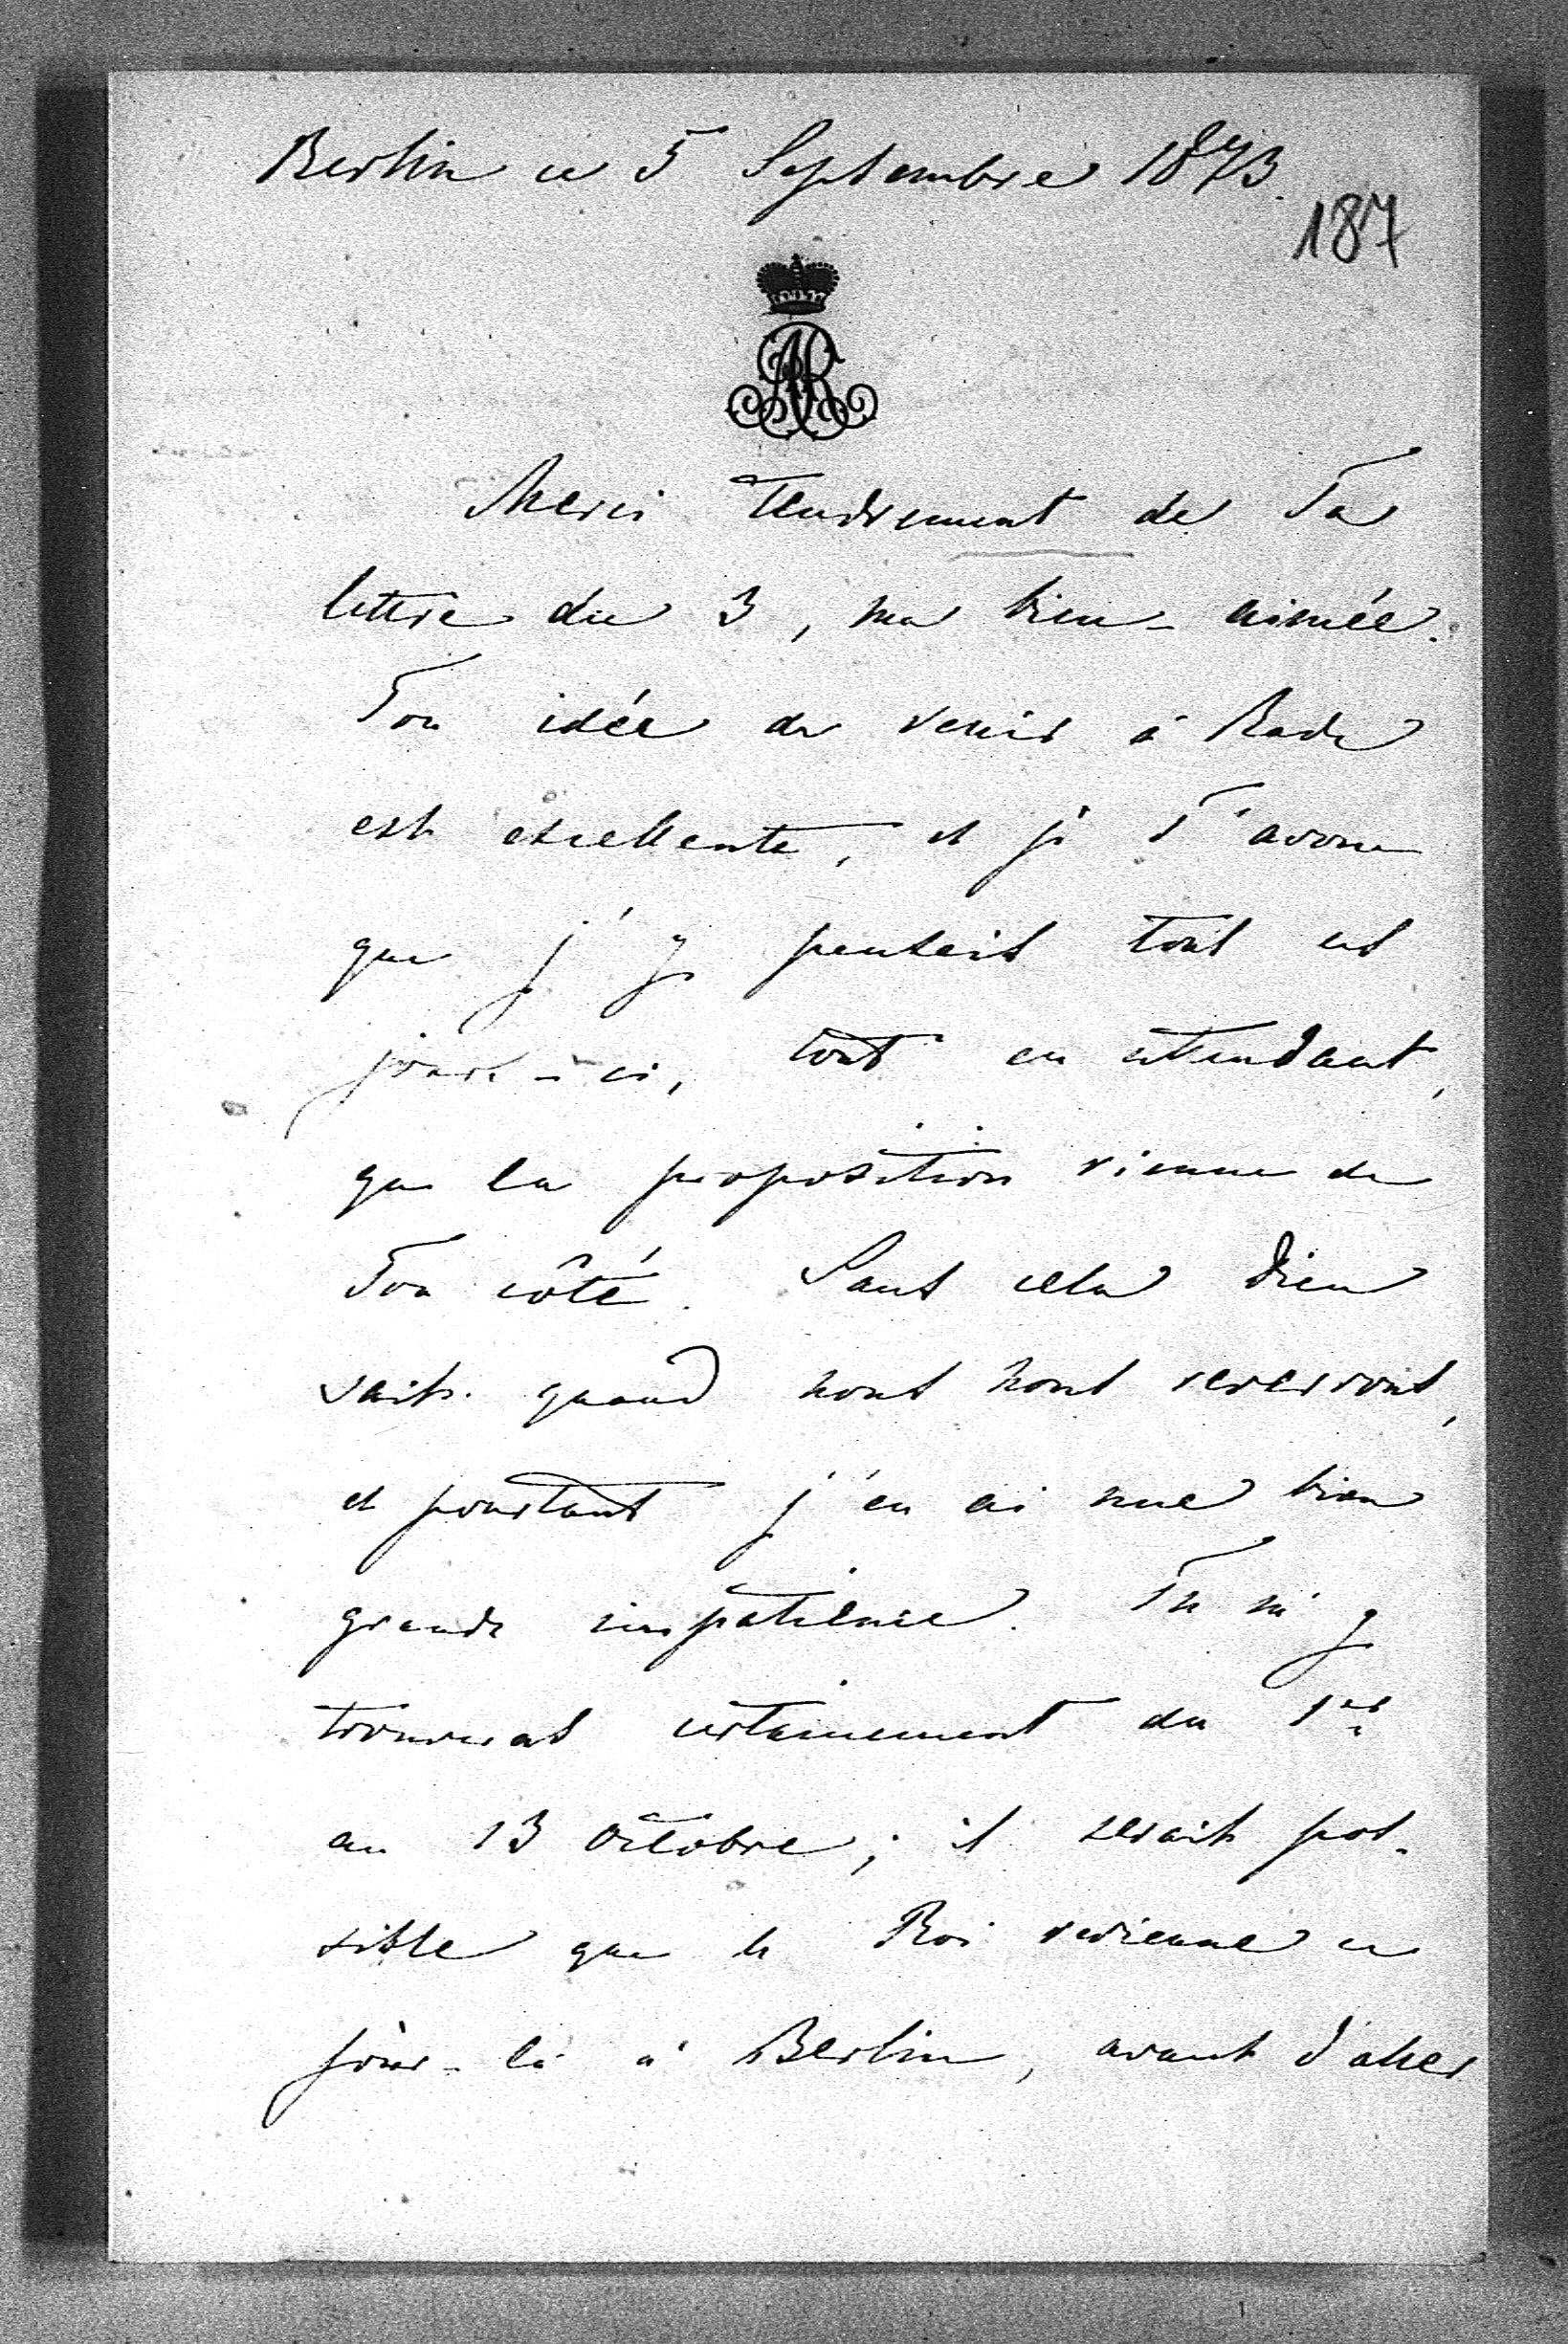 Berlin ce 5 Septembre 1873.
187
AR
Merci tendrement de Ta
lettre du 3, ma bien-aimée.
Ton idée de venir à Bade
est excellente, et je T'avoue
que j'y pensais tous ces
jours-ci, tout en attendant,
que la proposition vienne de
Ton côté. Sans cela Dieu
sait quand nous nous reverrons,
et pourtant j'en ai une bien
grande impatience. Tu m'y
trouveras certainement du 1er
au 13 Octobre; il serait pos-
sible que le Roi revienne ce
jour-là à Berlin, avant d'aller